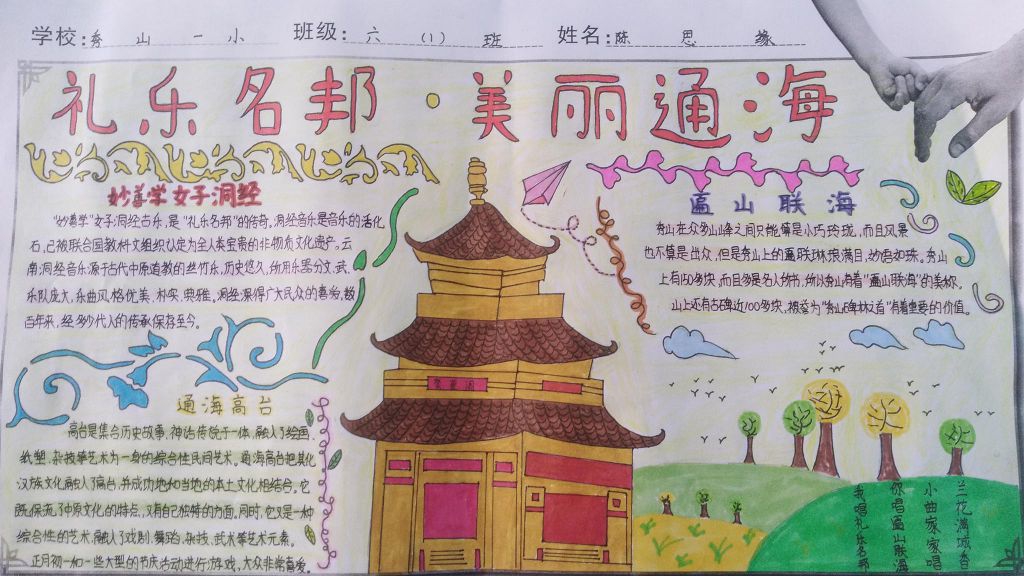 学校:秀山一小 班级:六(1)班 姓名:陈思缘
礼乐名邦·美丽通海
妙善学女子洞经
"妙善学"女子洞经古乐,是"礼乐名邦"的传奇,洞经音乐是音乐的活化
石,已被联合国教科文组织认定为全人类宝贵的非物质文化遗产。云
南洞经音乐源于古代中原道教的丝竹乐,历史悠久,所用乐器分文、武、
乐队庞大,乐曲风格优美、朴实、典雅。洞经深得广大民众的喜爱,数
百年来,经多少代人的传承保存至今。
通海高台
高台是集合历史故事、神话传说于一体,融入了绘画、
纸塑、杂技等艺术为一身的综合性民间艺术。通海高台把其他
汉族文化融入了高台,并成功地和当地的本土文化相结合。它
既保流了中原文化的特点,又有自己独特的方面。同时,它又是一种
综合性的艺术,融入了戏剧、舞蹈、杂技、武术等艺术元素。
正月初一和一些大型的节庆活动进行游戏,大众非常喜爱。
匾山联海
秀山在众多山峰之间只能算是小巧玲珑,而且风景
也不算是出众,但是秀山上的匾联琳琅满目,妙语如珠。秀山
上有150多块,而且多是名人书,所以秀山有着"匾山联海"的美称。
山上还有古碑近100多块,被誉为"秀山碑林",有着重要的价值。
兰花满城香
小曲家家唱
你唱匾山联海
我唱礼乐名邦